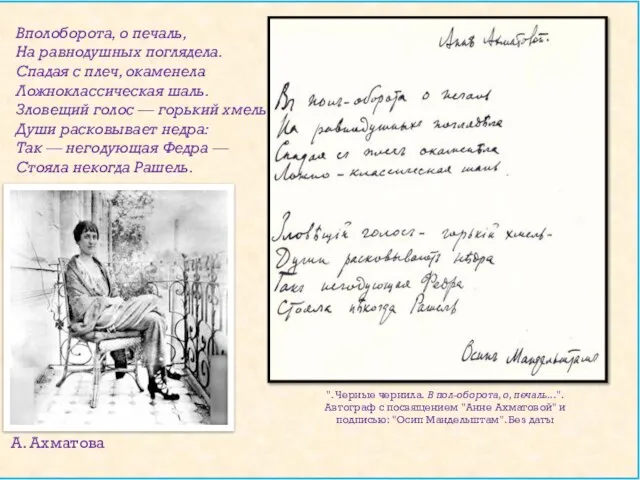 Вполоборота, о печаль,
На равнодушных поглядела.
Спадая с плеч, окаменела
Ложноклассическая шаль.
Зловещий голос — горький хмель
Души расковывает недра:
Так — негодующая Федра —
Стояла некогда Рашель.
Аннѣ Ахматовой.
Въ пол-оборота о печаль
На равнодушныхъ поглядѣла
Спадая съ плечъ окаменѣла
Ложно-классическая шаль.
Зловѣщій голосъ - горькій хмель -
Души расковываетъ нѣдра
Такъ негодующая Федра
Стояла нѣкогда Рашель
Осипъ Мандельштамъ
". Черные чернила. В пол-оборота, о, печаль...".
Автограф с посвящением "Анне Ахматовой" и
подписью: "Осип Мандельштам". Без даты
А. Ахматова